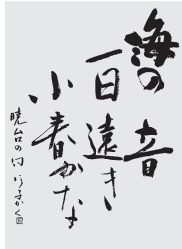 海の音
一日遠き
小春かな
暁台の句